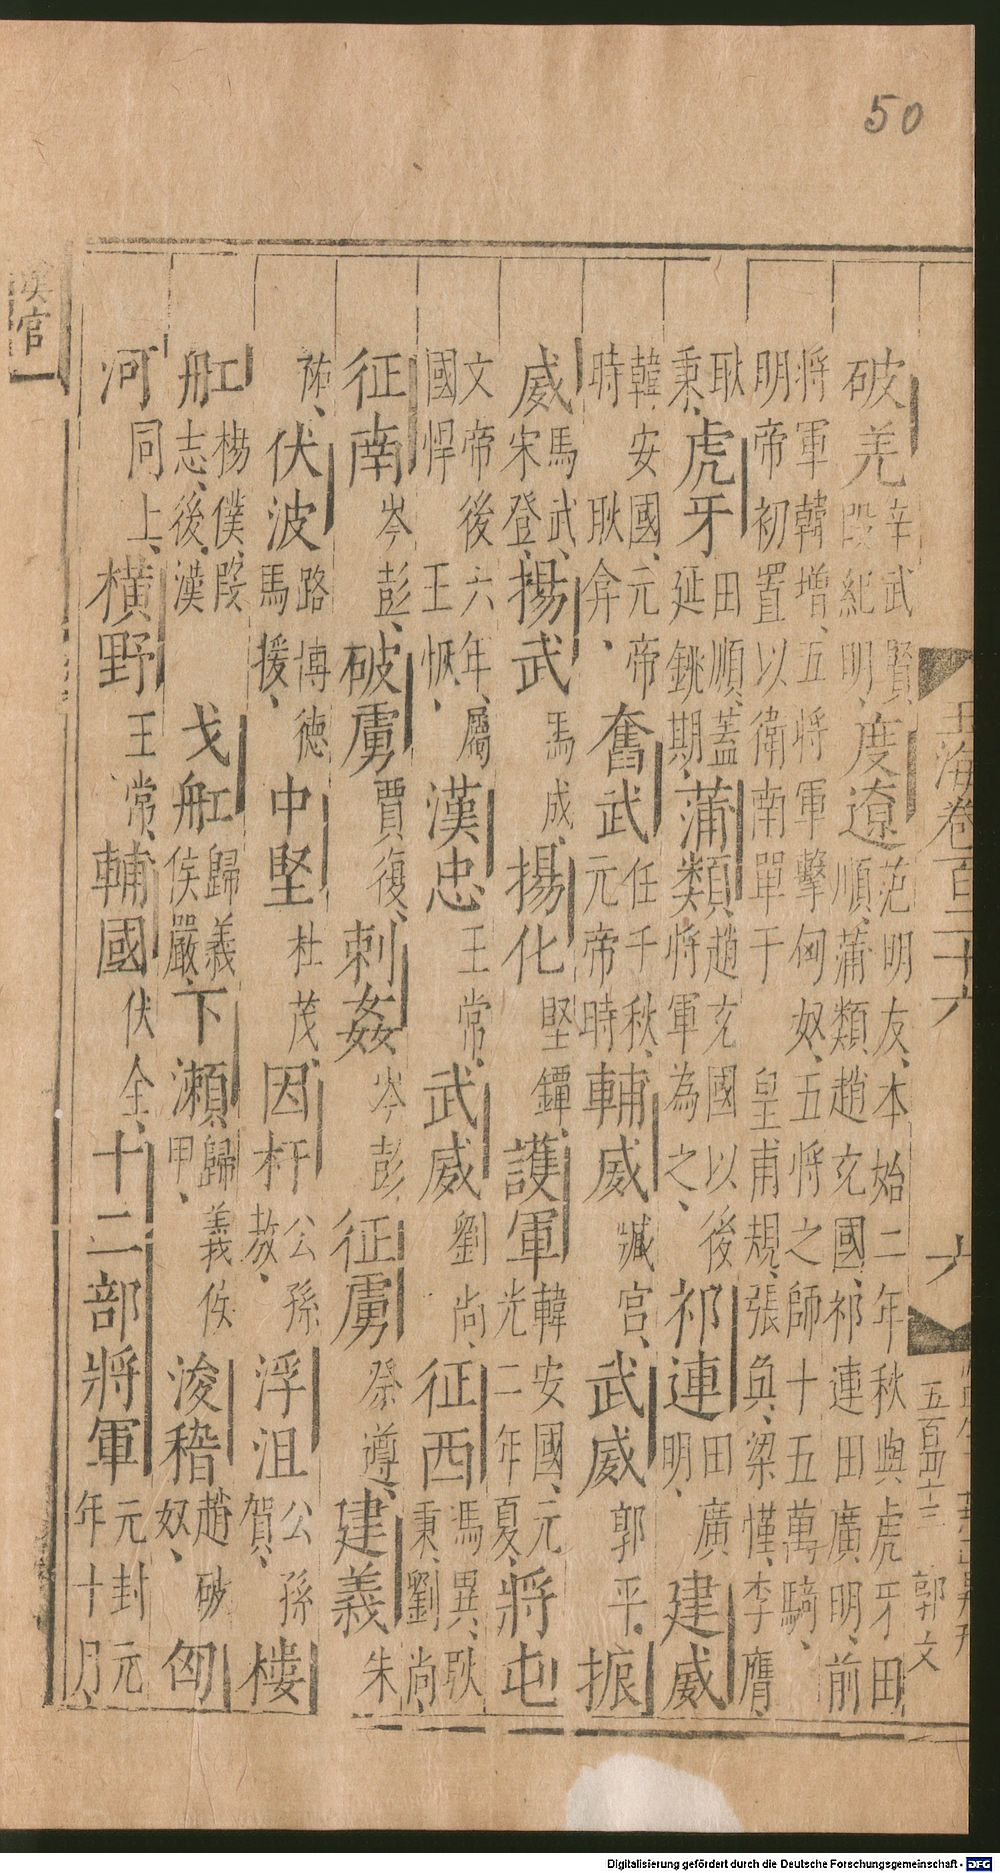 50
玉海卷百三十六
六
五百四十三
郭文
破羌辛武賢段紀明度遼范明友本始二年秋與虎牙田順蒲類趙充國祁連田廣明前
將軍韓增五將軍擊匈奴五將之師十五萬騎明帝初置以衛南單于皇甫規張奐梁慬李膺
耿秉虎牙田順蓋延銚期蒲類趙充國以後將軍為之祁連田廣明建威
韓安國元帝時耿弇奮武任千秋元帝時輔威臧宮武威郭平振
威馬武宋登揚武馬成揚化堅鐔護軍韓安國元光二年夏將屯
文帝後六年屬國悍王恢漢忠王常武威劉尚征西馮異耿秉劉尚
征南岑彭破虜賈復刺姦岑彭征虜祭遵建義朱
祐伏波路博德馬援中堅杜茂因杅公孫敖浮沮公孫賀樓
舡楊僕段志後漢戈舡歸義侯嚴下瀨歸義侯甲浚稽趙破奴匈
河同上橫野王常輔國伏全十二部將軍元封元年十月
漢官
Digitalisierung gefördert durch die Deutsche Forschungsgemeinschaft - DFG